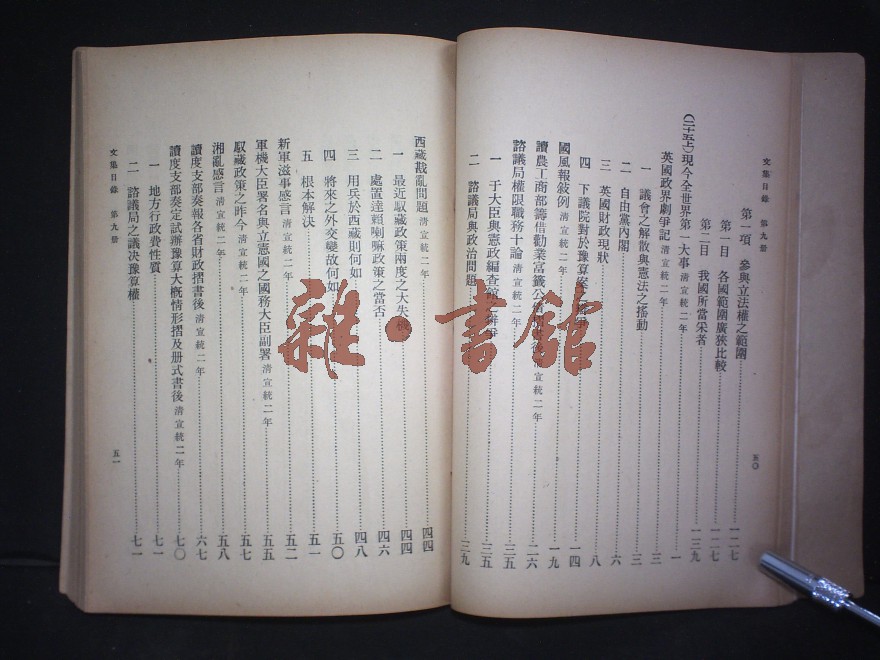 文集目錄 第九册
五〇
第一項 參與立法權之範圍
第一目 各國範圍廣狹比較 一二七
第二目 我國所當采者 一三九
(二十五上)現今全世界第一大事 清宣統二年 一
英國政界劇爭記 清宣統二年 三
一 議會之解散與憲法之搖動 三
二 自由黨內閣 六
三 英國財政現狀 八
四 下議院對於豫算案 一四
國風報敍例 清宣統二年 一九
讀農工商部籌借勸業富籤公 書後 清宣統二年 二六
諮議局權限職務十論 清宣統二年 三五
一 于大臣與憲政編查館之 三五
二 諮議局與政治問題 三九
西藏戡亂問題 清宣統二年 四四
一 最近馭藏政策兩度之大失機 四四
二 處置達賴喇嘛政策之當否 四六
三 用兵於西藏則何如 四八
四 將來之外交變故何如 五〇
五 根本解決 五一
新軍滋事感言 清宣統二年 五二
軍機大臣署名與立憲國之國務大臣副署 清宣統二年 五五
馭藏政策之昨今 清宣統二年 五七
湘亂感言 清宣統二年 五八
讀度支部奏報各省財政摺書後 清宣統二年 六七
讀度支部奏定試辦豫算大概情形摺及册式書後 清宣統二年 七〇
一 地方行政費性質 七一
二 諮議局之議決豫算權 七一
文集目錄 第九册
五一
雜·書館